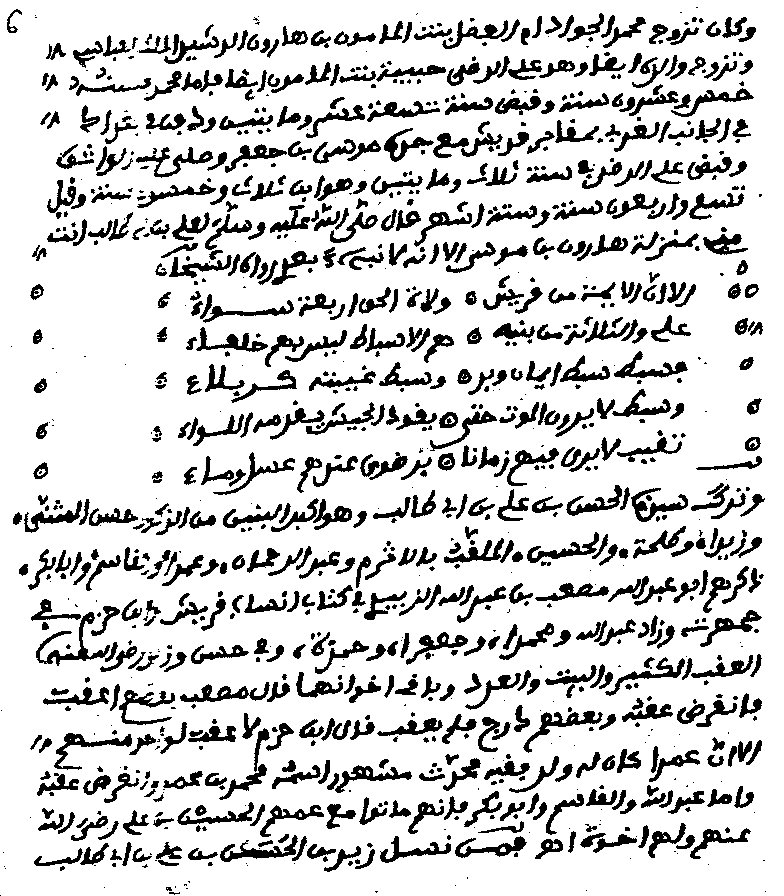 6
وكان تزوج محمد الجواد ام الفضل بنت المامون بن هارون الرشيد الملك العباسي
وتزوج والده ايضا وهو علي الرضى حبيبة بنت المامون ايضا فاما محمد سنه
خمس وعشرون سنة وقبض سنة تسعة عشر ومايتين ودفن في بغداد
في الجانب الغربي بمقابر قريش مع جده موسى بن جعفر وصلى عليه الواثق
وقبض علي الرضى في سنة ثلاث ومايتين وهو ابن ثلاث وخمسين سنة وقيل
تسع واربعون سنة وستة اشهر قال صلى الله عليه وسلم لعلي بن ابي طالب انت
مني بمنزلة هارون بن موسى الا انه لا نبي بعدي رواه الشيخان
الا ان الايمة من قريش ولاة الحق اربعة سواء
علي والثلاثة من بنيه هم الاسباط ليس بهم خفاء
فسبط سبط ايمان وبر وسبط غيبته كربلاء
وسبط لا يرون الموت حتى يقود الجيش يقدمه اللواء
تغيب لا يرى فيهم زمانا برضوى عندهم عسل وماء
وترك سيدنا الحسن بن علي بن ابي طالب وهو اكبر البنين من الذكور حسن المثنى
وزيدا وطلحة والحسين الملقب بالاثرم وعبد الرحمان وعمر والقاسم وابا بكر
ذكرهم ابو عبد الله مصعب بن عبد الله الزبيري في كتاب انساب قريش وابن حزم في
جمهرته وزاد عبد الله ومحمدا وجعفرا وحمزة وفي حسن وزيد رضي الله عنه
العقب الكثير والبيت والعدد وباقي اخوانهما قال مصعب بعضهم اعقب
فانقرض عقبه وبعضهم درج فلم يعقب قال ابن حزم لا عقب لواحد منهم
الا ان عمرا كان له ولد فقيه محدث مشهور اسمه محمد بن عمرو انقرض عقبه
واما عبد الله والقاسم وابو بكر فانهم ماتوا مع عمهم الحسين بن علي رضي الله
عنهم ولهم اخوة اهـ فمن نسل زيد بن الحسن بن علي بن ابي طالب